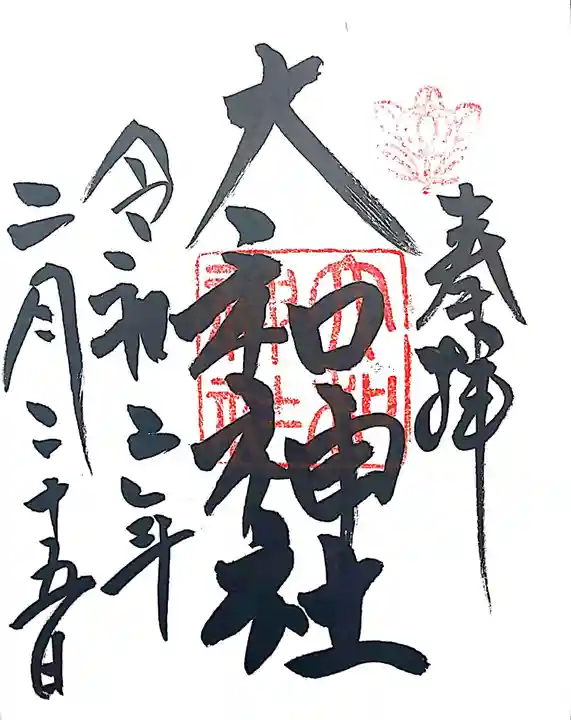 奉拝
大和神社
令和二年
二月二十五日
大和神社